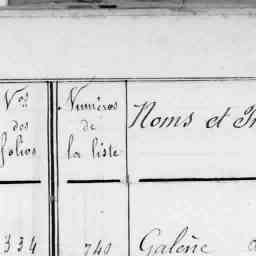 Nos
des
folios
Numéros
de
la liste
Noms et
334
740
Galerie